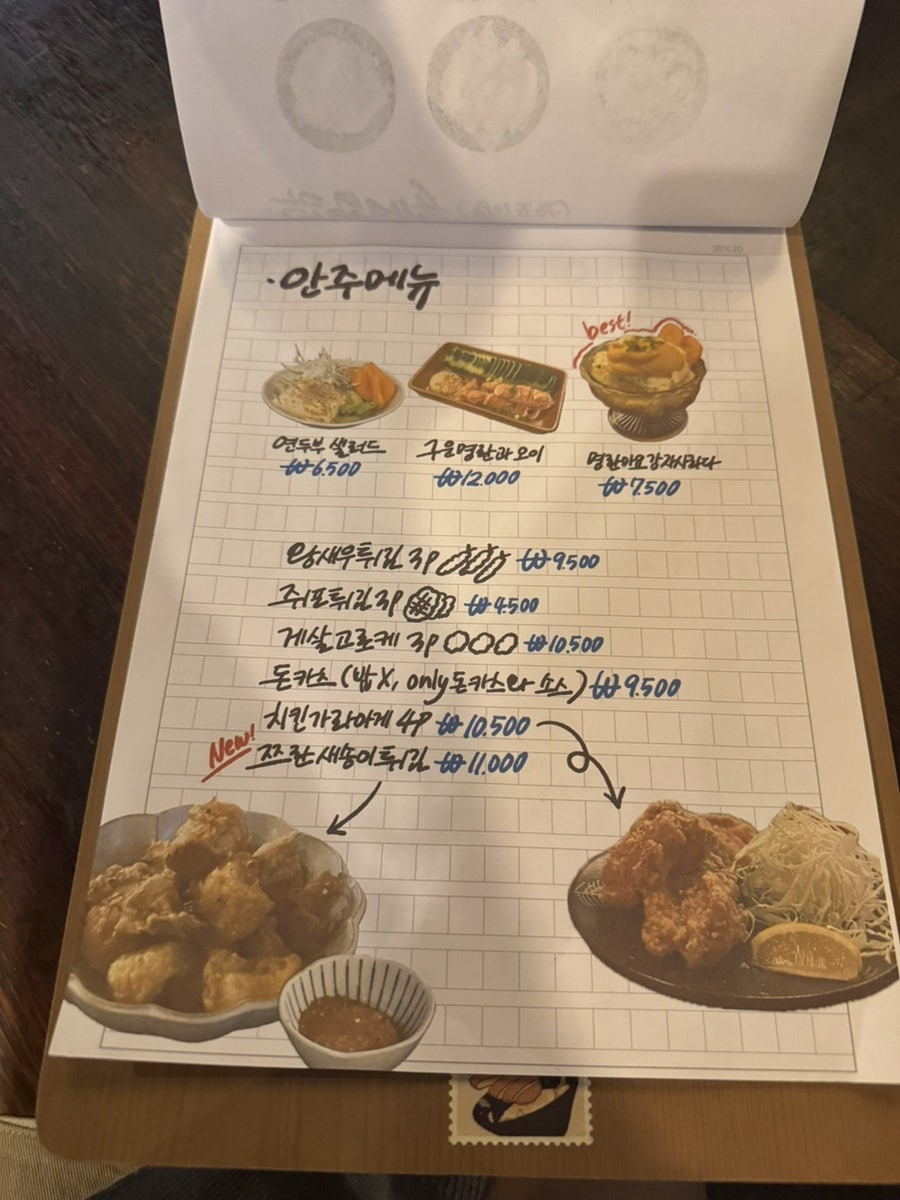 20×20
·안주메뉴
best!
연두부 샐러드
₩6.500
구운명란과 오이
₩12.000
명란마요감자사라다
₩7.500
왕새우튀김 3P ₩9.500
쥐포튀김 3P ₩4.500
게살고로케 3P ₩10.500
돈카츠 (밥X, only돈카츠와 소스) ₩9.500
치킨가라아게 4P ₩10.500
New! 쯔란새송이튀김 ₩11.000